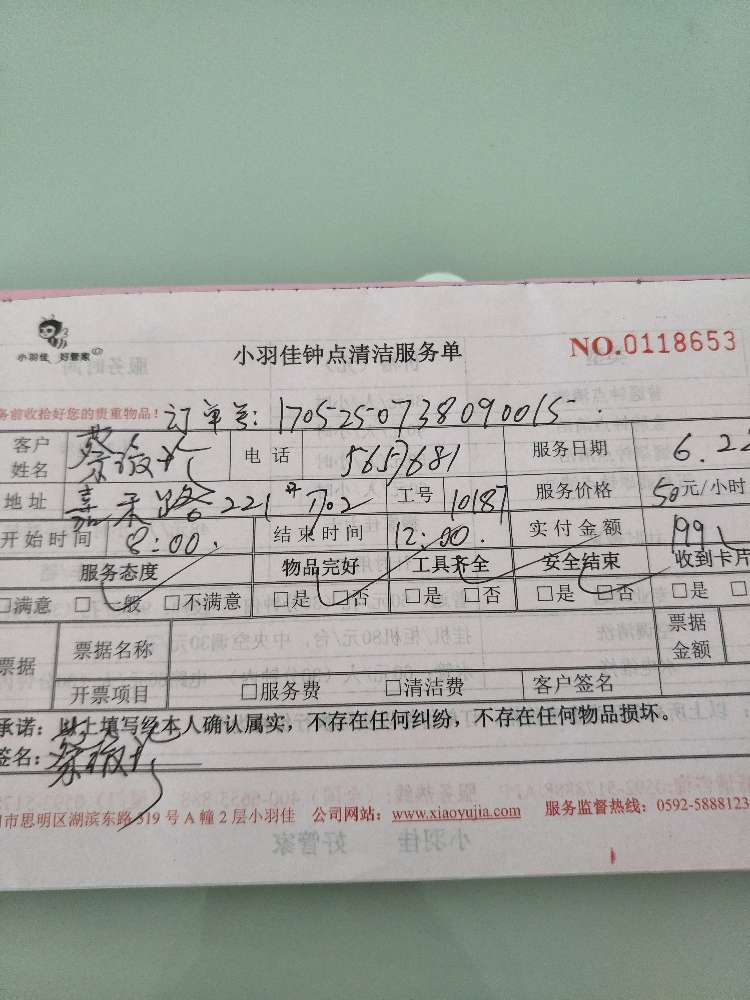 小羽佳 好管家
小羽佳钟点清洁服务单
NO.0118653
务前收拾好您的贵重物品!
订单号: 1705250738090015
客户姓名
电话 5657681
服务日期 6.22
地址 221 702
工号 10187
服务价格 50元/小时
开始时间 8:00.
结束时间 12:00.
实付金额 199
服务态度 物品完好 工具齐全 安全结束 收到卡片
□满意 □一般 □不满意 □是 □否 □是 □否 □是 □否 □是
票据 票据名称 票据金额
开票项目 □服务费 □清洁费 客户签名
承诺:以上填写经本人确认属实,不存在任何纠纷,不存在任何物品损坏。
签名:
市思明区湖滨东路319号A幢2层小羽佳 公司网站:www.xiaoyujia.com 服务监督热线:0592-5888123